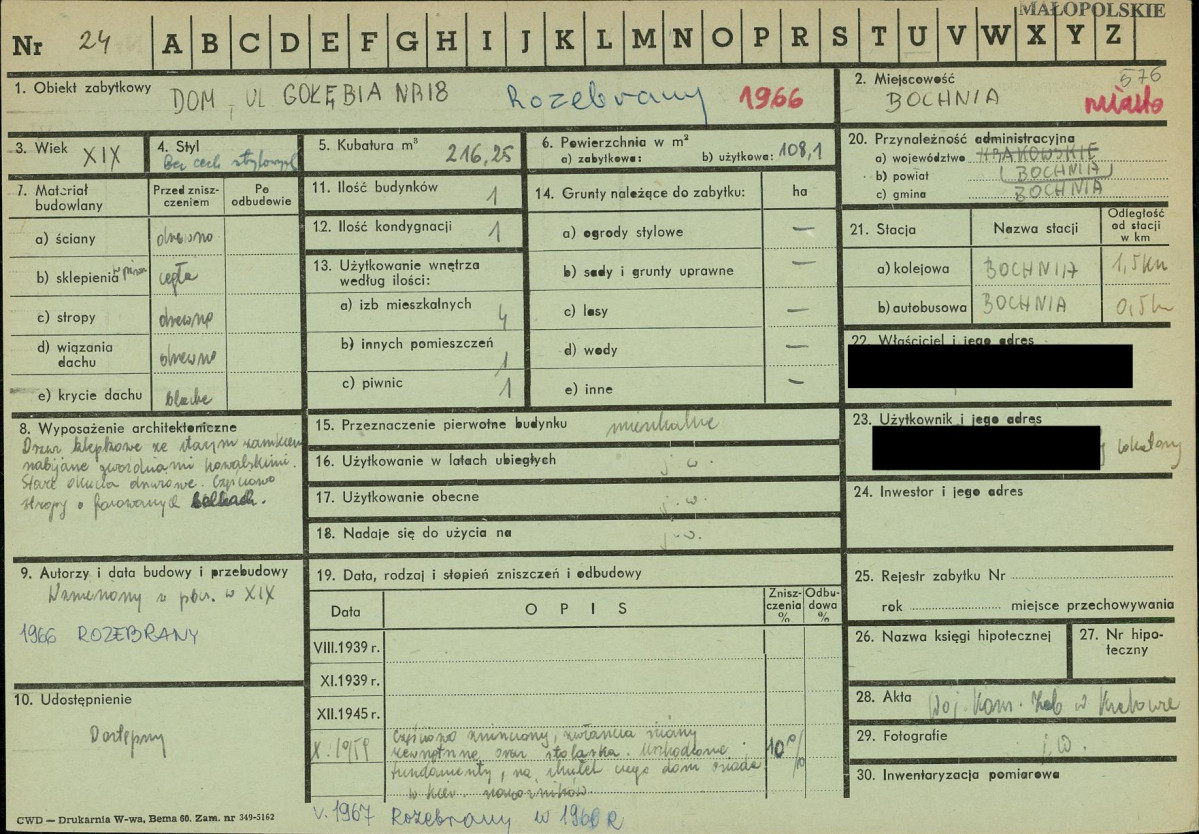 MAŁOPOLSKIE
Nr 24 A B C D E F G H I J K L M N O P R S T U V W X Y Z
1. Obiekt zabytkowy DOM, UL GOŁĘBIA NR 18 Rozebrany 1966
2. Miejscowość 576
BOCHNIA miasto
3. Wiek XIX
4. Styl
Bez cech stylowych
5. Kubatura m³ 216,25
6. Powierzchnia w m²
a) zabytkowa: b) użytkowa: 108,1
20. Przynależność administracyjna
a) województwo KRAKOWSKIE
b) powiat BOCHNIA
c) gmina BOCHNIA
7. Materiał budowlany
Przed zniszczeniem
Po odbudowie
a) ściany drewno
b) sklepienia cegła
c) stropy drewno
d) wiązania dachu drewno
e) krycie dachu blacha
11. Ilość budynków 1
12. Ilość kondygnacji 1
13. Użytkowanie wnętrza
według ilości:
a) izb mieszkalnych 4
b) innych pomieszczeń 1
c) piwnic 1
14. Grunty należące do zabytku: ha
a) ogrody stylowe —
b) sady i grunty uprawne —
c) lasy —
d) wody —
e) inne —
21. Stacja Nazwa stacji
Odległość od stacji w km
a) kolejowa BOCHNIA 1,5 km
b) autobusowa BOCHNIA 0,5
22. Właściciel i jego adres
8. Wyposażenie architektoniczne
Drzwi klepkowe ze starym zamkiem
nabijane gwoździami kowalskimi.
Stare okucia drzwiowe. Częściowo
stropy o fazowanych belkach.
15. Przeznaczenie pierwotne budynku mieszkalne
16. Użytkowanie w latach ubiegłych j. w.
17. Użytkowanie obecne j. w.
18. Nadaje się do użycia na j. w.
23. Użytkownik i jego adres
lokatorzy
24. Inwestor i jego adres
9. Autorzy i data budowy i przebudowy
Wzniesiony w pocz. w XIX
1966 ROZEBRANY
19. Data, rodzaj i stopień zniszczeń i odbudowy
Data OPIS Zniszczenia % Odbudowa %
VIII.1939 r.
XI.1939 r.
XII.1945 r.
X. 1959 Częściowo zniszczony, zwłaszcza ściany
zewnętrzne oraz stolarka. Uszkodzone 10%
fundamenty, na skutek czego dom osiada
w kier. narożników.
V. 1967 Rozebrany w 1966 R
25. Rejestr zabytku Nr
rok miejsce przechowywania
26. Nazwa księgi hipotecznej
27. Nr hipoteczny
10. Udostępnienie
Dostępny
28. Akta Woj. Kons. Zab w Krakowie
29. Fotografie j. w.
30. Inwentaryzacja pomiarowa
CWD — Drukarnia W-wa, Bema 60. Zam. nr 349-5162